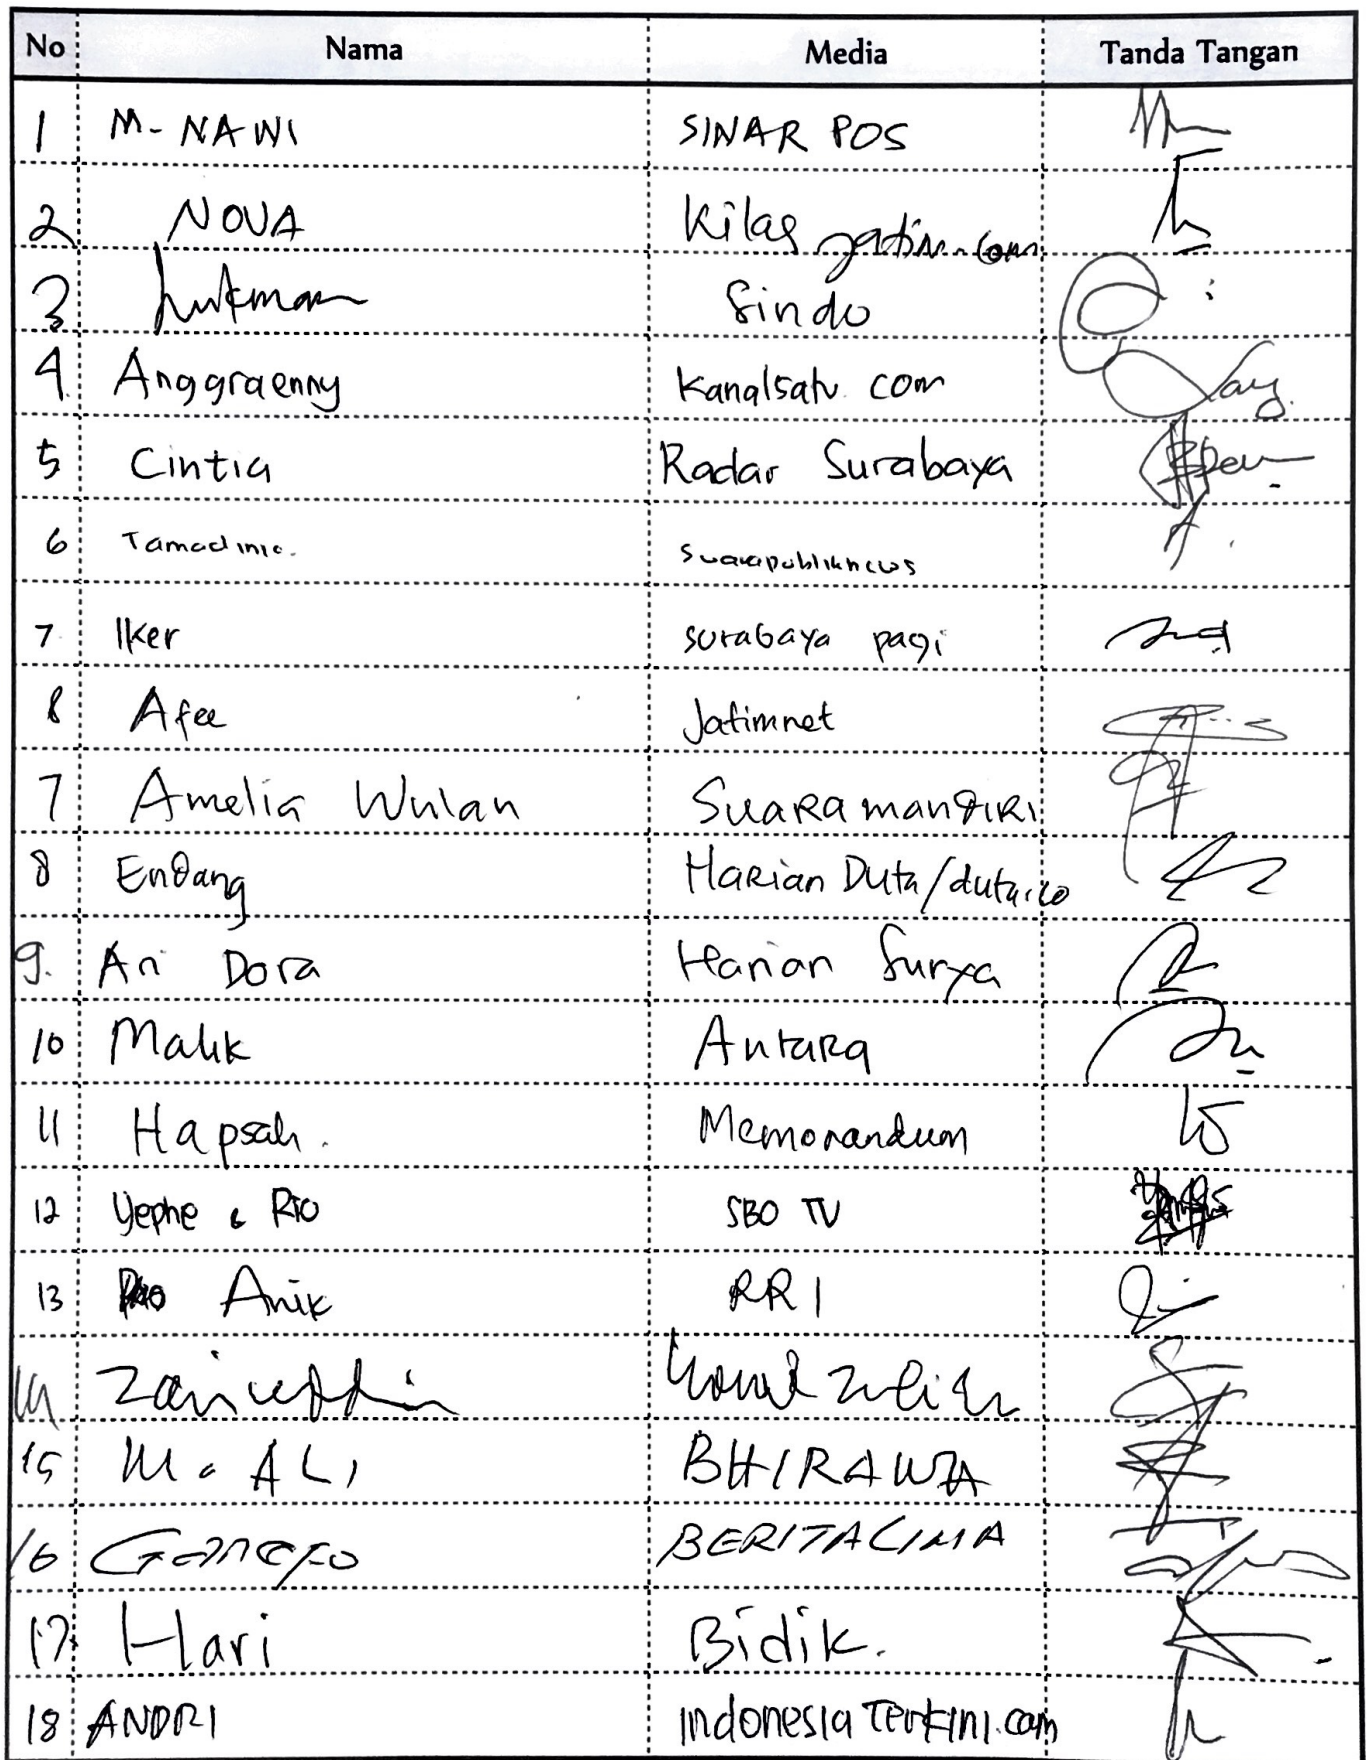 No Nama Media Tanda Tangan
1 M- NAWI SINAR POS
2 NOVA Kilas jatim.com
3 Lukman Sindo
4. Anggraenny Kanalsatu.com
5 Cintia Radar Surabaya
6 Tamadinie. suarapubliknews
7. Iker surabaya pagi
8 Afee Jatimnet
7 Amelia Wulan Suara mandiri
8 Endang Harian Duta/duta.co
9. Ari Dora Harian Surya
10 Malik Antara
11 Hapsah. Memorandum
12 Yephe & Rio SBO TV
13 Anik RRI
14 Zainuddin
15 M. ALI BHIRAWA
16 Ganefo BERITALIMA
17. Hari Bidik.
18 ANDRI Indonesia Terkini.com